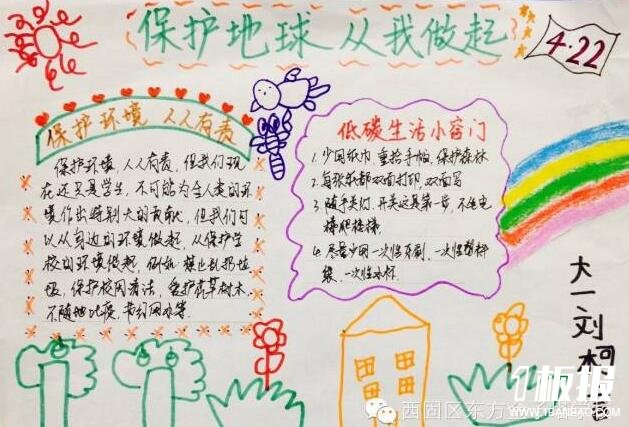 保护地球 从我做起
4.22
保护环境 人人有责
保护环境,人人有责,但我们现
在还只是学生,不可能为全人类的环
境作出特别大的贡献,但我们可
以从身边的环境做起,从保护学
校的环境做起,例如:禁止乱扔垃
圾,保护校园清洁,爱护花草树木,
不随地吐痰,节约用水等.
低碳生活小窍门
1.少用纸巾,重拾手帕,保护森林
2.每张纸都双面打印,双面写
3.随手关灯、开关这是第一步,不坐电
梯爬楼梯
4.尽量少用一次性牙刷、一次性塑料
袋、一次性水杯
大一刘
西固区东方
1板报
www.1BANBAO.com